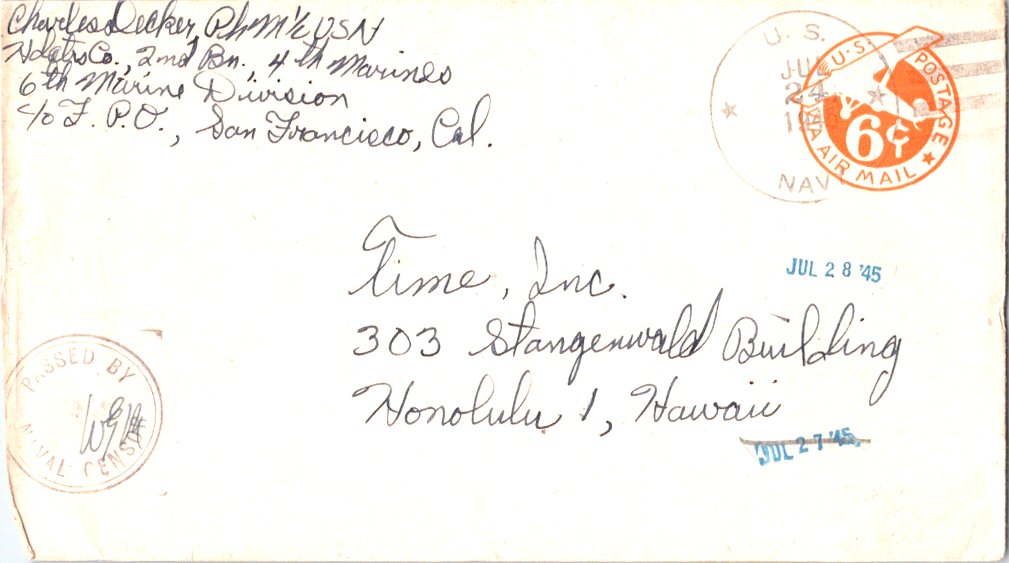 Charles Decker, PhM1/c USN
Hdqtrs Co., 2nd Bn., 4th Marines
6th Marine Division
c/o F. P.O., San Francisco, Cal.
U. S.
JUL
24
NAVY
U.S. POSTAGE
6¢
VIA AIR MAIL
JUL 28 '45
Time, Inc.
303 Stangenwald Building
Honolulu 1, Hawaii
JUL 27 '45
PASSED BY
NAVAL CENSOR